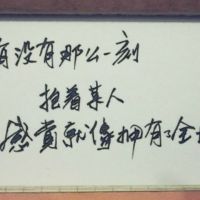 有没有那么一刻
抱着某人
感觉就像拥有了全